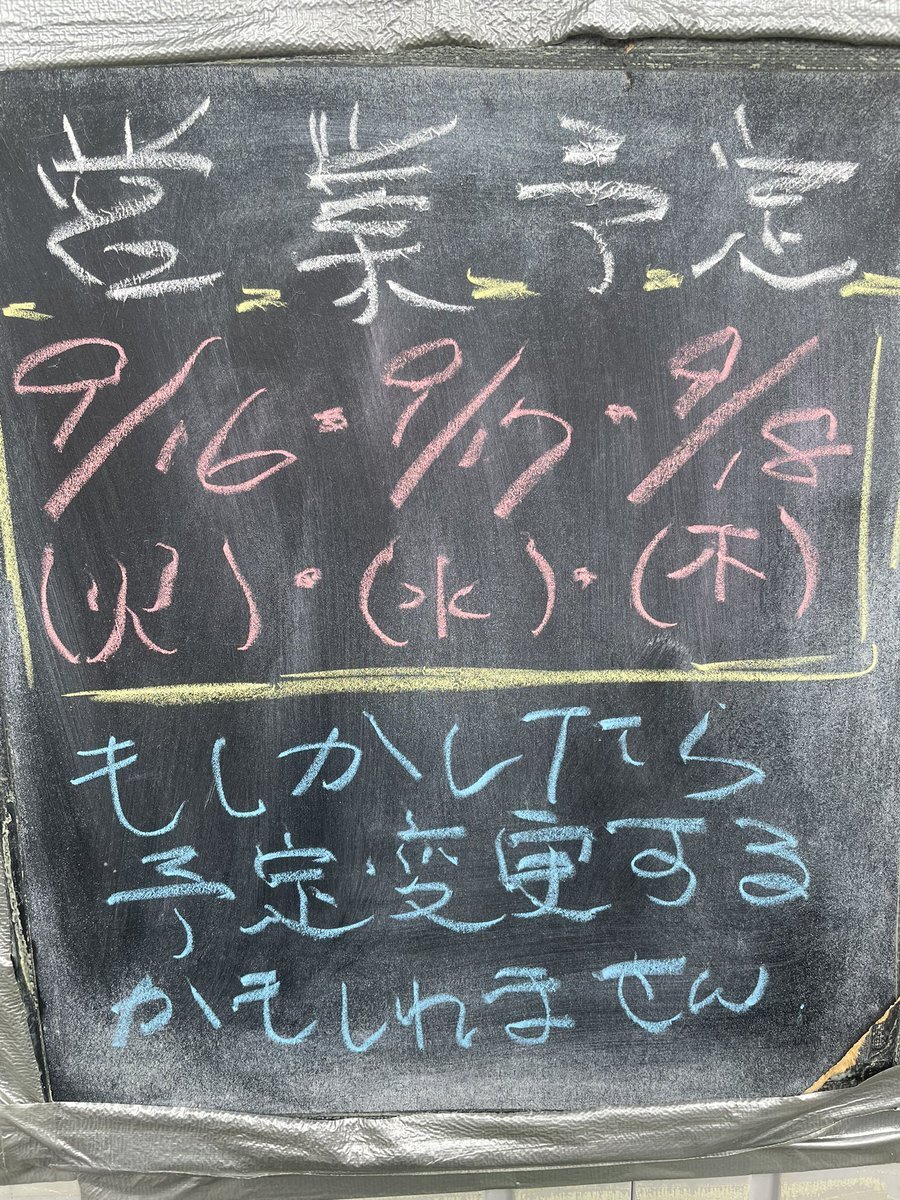 営業予定
9/16・9/17・9/18
(火)・(水)・(木)
もしかしてたら
予定変更する
かもしれません